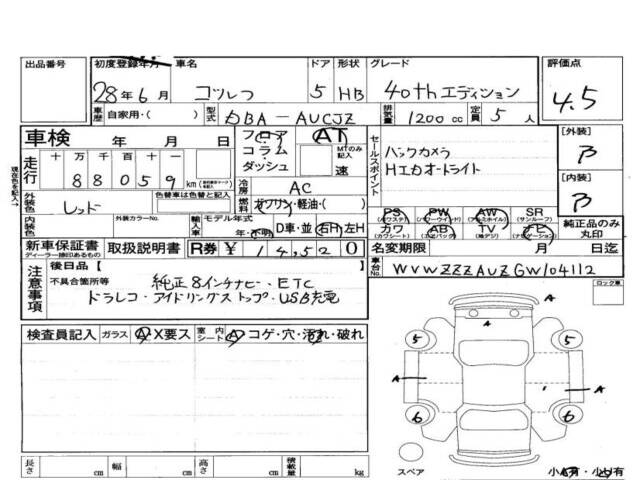 出品番号 初度登録年月 車名 ドア 形状 グレード 評価点
28年6月 5 HB 40thエディション 4.5
車歴 自家用・( ) 型式 DBA-AUCJZ 排気量 1200cc 定員 5人
車検 年 月 日 フロア コラム ダッシュ AT MTのみ記入 速
走行 十 万 千 百 十 一
88059 km
冷房 AC
外装色 レッド 色替車は色替と記入 燃料 ガソリン・軽油・( )
内装色 外装カラーNo. 輸入車 モデル年式 年・不明 D車・並 右H 左H
セールスポイント
バックカメラ
Hエカオートライト
PS PW AW SR
(パワステ) (パワーウインド) (アルミホイル) (サンルーフ)
カワ AB TV
(カワシート) (エアバック) (ナビゲーション)
[外装] A
[内装] A
純正品のみ丸印
新車保証書 取扱説明書 R券 ¥ 14,520
ディーラー捺印あるもの
名変期限 月 日迄
車台No. WVWZZZAUZGW104112
注意事項 後日品[ ]
不具合箇所等 純正8インチナビ・ETC
ドラレコ・アイドリングストップ・USB充電
ロック車
検査員記入 ガラス A X要ス 室内シート A コゲ・穴・汚れ・破れ
A
5 5
A A
6 6
スペア
長さ cm 幅 cm 高さ cm 積載量 kg
現在色を記入→